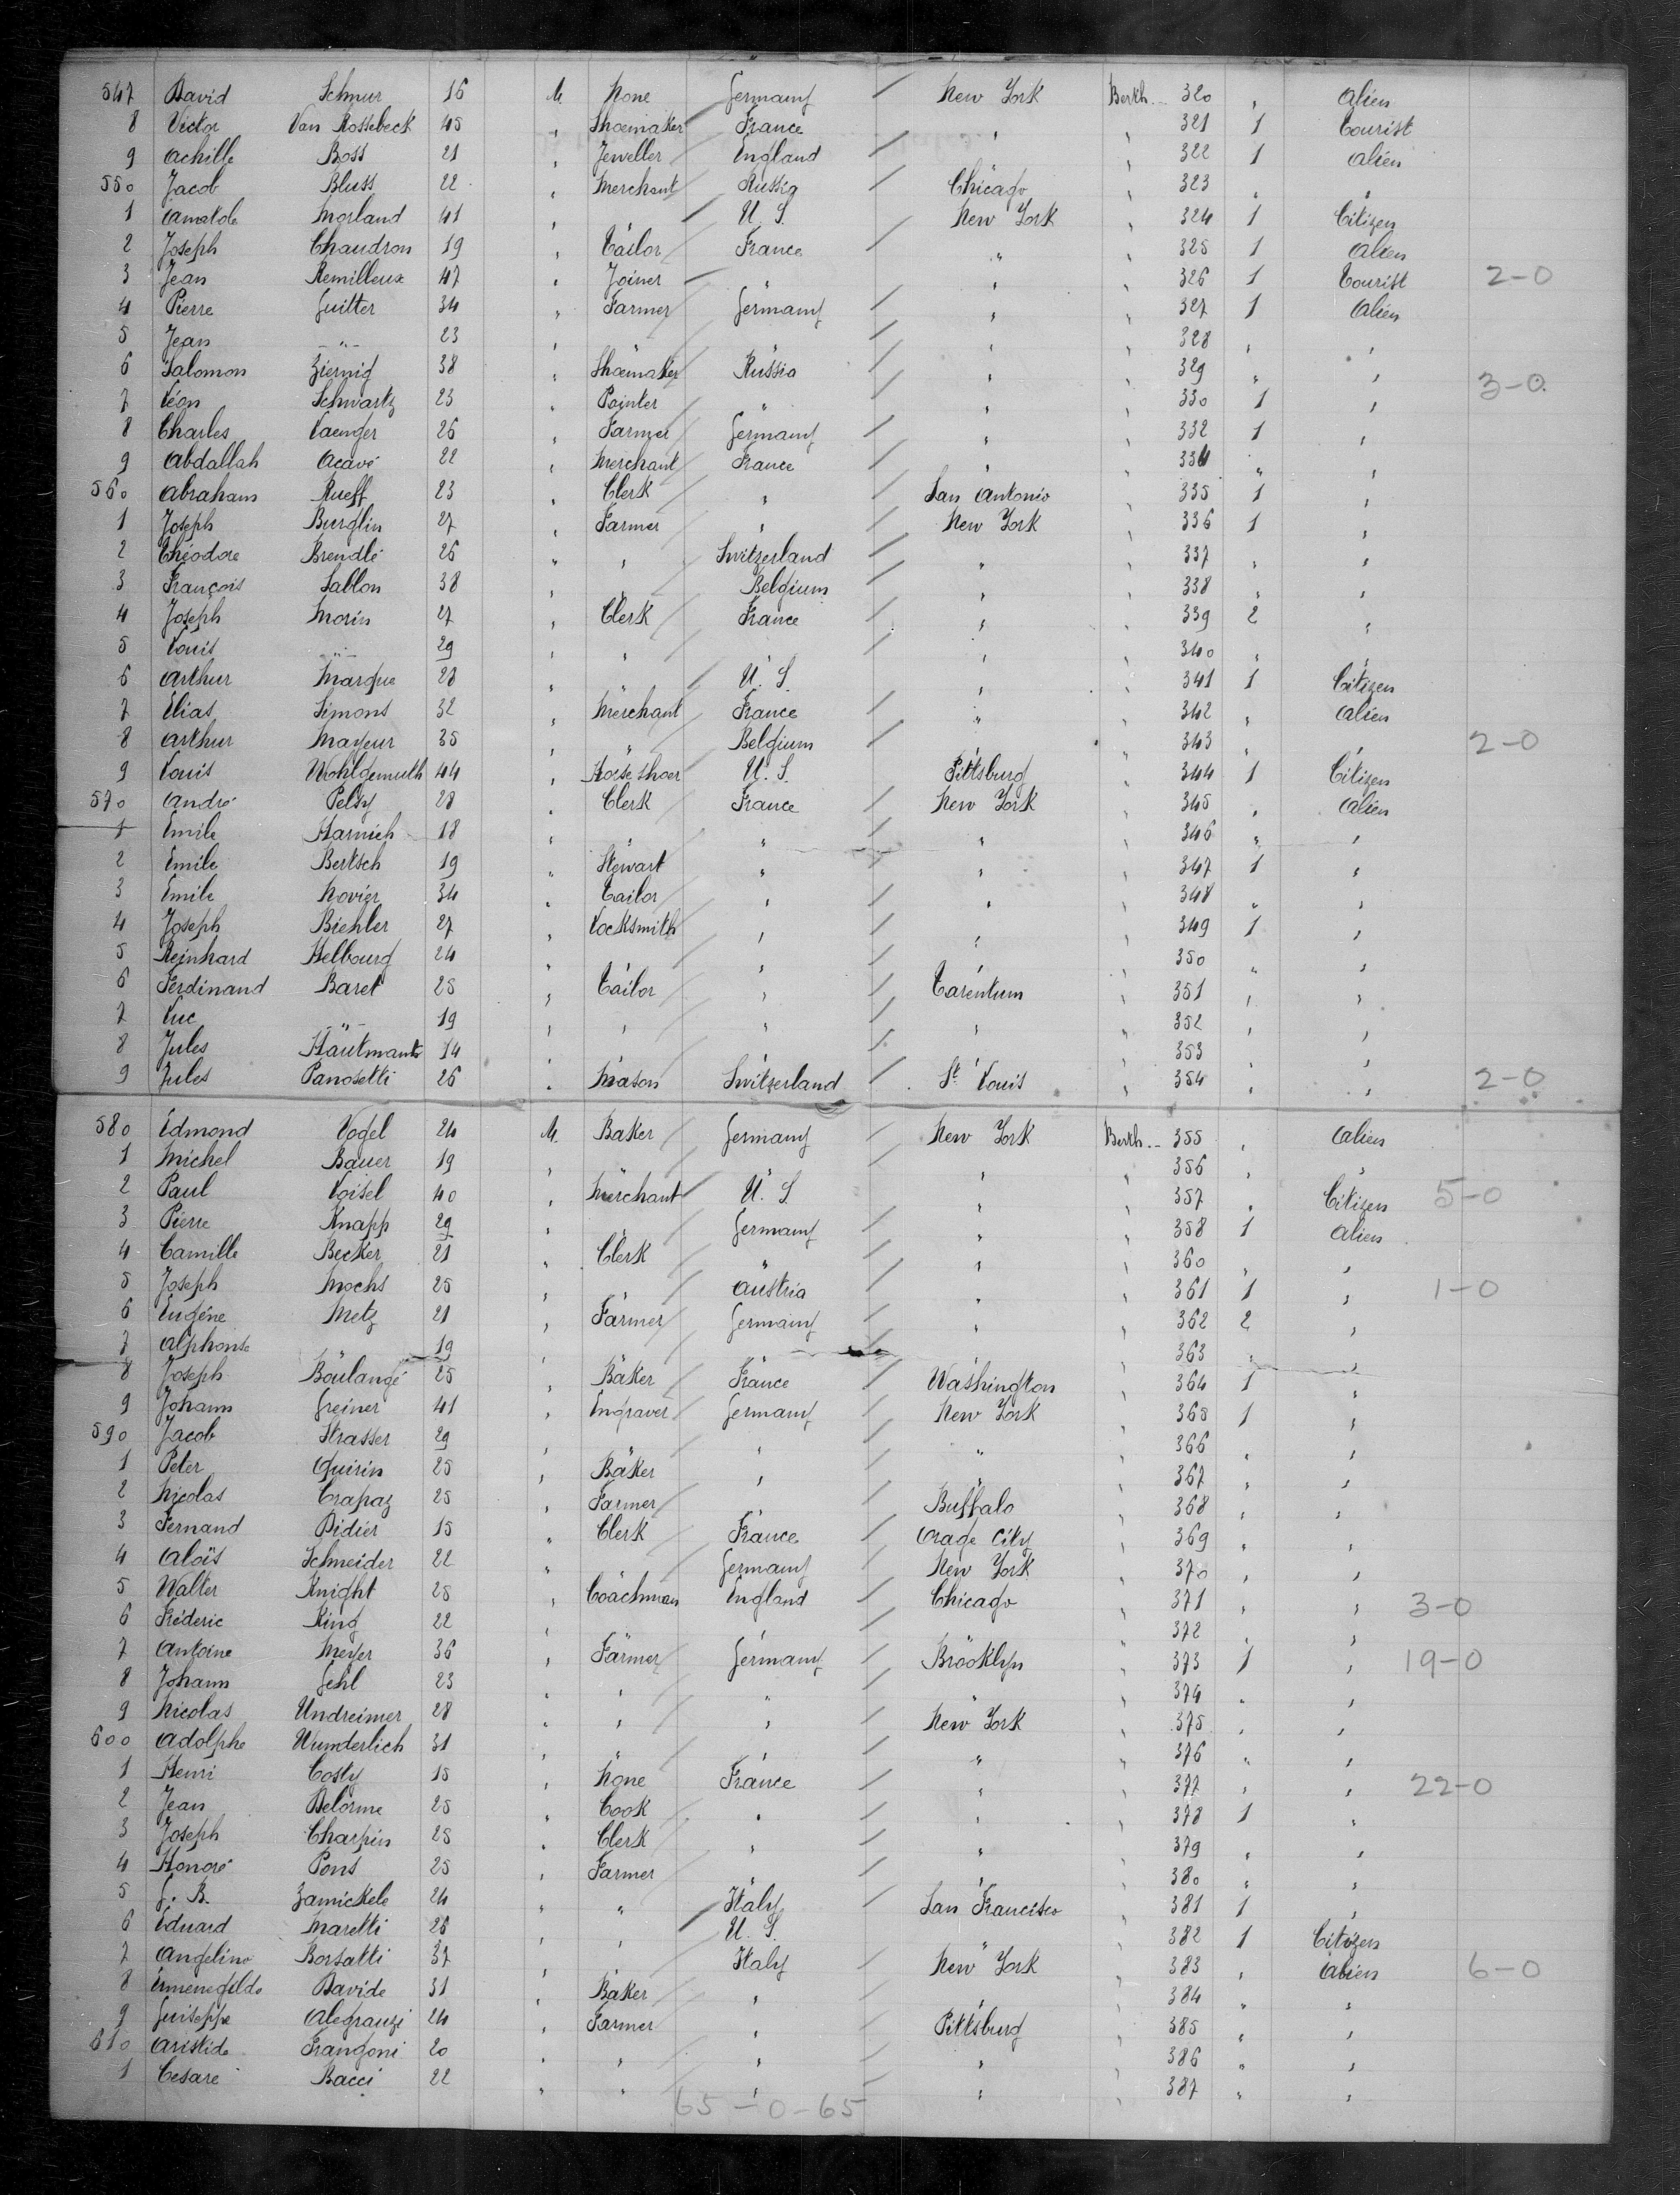 547 David Schnur 16 M. None Germany / New York Berth. 320 " Alien
8 Victor Van Rossebeck 45 " Shoemaker France / " " 321 1 Tourist
9 Achille Boss 21 " Jeweller England / " " 322 1 Alien
550 Jacob Bluss 22 " Merchant Russia / Chicago " 323 " "
1 Anatole Morland 41 " " U. S. New York " 324 1 Citizen
2 Joseph Chaudron 19 " Tailor France / " " 325 1 Alien
3 Jean Remilleux 47 " Joiner " / " " 326 1 Tourist 2-0
4 Pierre Guitter 34 " Farmer Germany / " " 327 1 Alien
5 Jean -"- 23 " " " / " " 328 " "
6 Salomon Ziernig 38 " Shoemaker Russia / " " 329 " " 3-0
7 Léon Schwartz 23 " Painter " / " " 330 1 "
8 Charles Vaenger 26 " Farmer Germany / " " 332 1 "
9 Abdallah Acavé 22 " Merchant France / " " 334 " "
560 Abraham Rueff 23 " Clerk " / San Antonio " 335 1 "
1 Joseph Burglin 27 " Farmer " / New York " 336 1 "
2 Théodore Brendlé 26 " " Switzerland / " " 337 " "
3 François Sablon 38 " " Belgium / " " 338 " "
4 Joseph Morin 27 " Clerk France / " " 339 2 "
5 Louis -"- 29 " " " / " " 340 " "
6 Arthur Marque 28 " " U. S. " " 341 1 Citizen
7 Elias Simons 32 " Merchant France / " " 342 " Alien
8 Arthur Mayeur 35 " " Belgium / " " 343 " " 2-0
9 Louis Wohlgemuth 44 " Horse shoer U. S. Pittsburg " 344 1 Citizen
570 André Pelsy 28 " Clerk France / New York " 345 " Alien
1 Emile Harnich 18 " " " / " " 346 " "
2 Emile Bertsch 19 " Stewart " / " " 347 1 "
3 Emile Novier 34 " Tailor " / " " 348 " "
4 Joseph Biehler 27 " Locksmith " / " " 349 1 "
5 Reinhard Helbourg 24 " " " / " " 350 " "
6 Ferdinand Baret 25 " Tailor " / Tarentum " 351 " "
7 Luc -"- 19 " " " / " " 352 " "
8 Jules Hautmants 14 " " " / " " 353 " "
9 Jules Panosetti 26 " Mason Switzerland / St. Louis " 354 " " 2-0
580 Edmond Vogel 24 M. Baker Germany / New York Berth. 355 " Alien
1 Michel Bauer 19 " " " / " " 356 " "
2 Paul Loisel 40 " Merchant U. S. " " 357 " Citizen 5-0
3 Pierre Knapp 29 " " Germany / " " 358 1 Alien
4 Camille Becker 21 " Clerk " / " " 360 " "
5 Joseph Mochs 25 " " Austria / " " 361 1 " 1-0
6 Eugène Metz 21 " Farmer Germany / " " 362 2 "
7 Alphonse 19 " " " / " " 363 " "
8 Joseph Boulangé 25 " Baker France / Washington " 364 1 "
9 Johann Greiner 41 " Engraver Germany / New York " 365 1 "
590 Jacob Strasser 29 " " " / " " 366 " "
1 Peter Quirin 25 " Baker " / " " 367 " "
2 Nicolas Crapaz 25 " Farmer " / Buffalo " 368 " "
3 Fernand Didier 15 " Clerk France / Orage City " 369 " "
4 Aloïs Schneider 22 " " Germany / New York " 370 " "
5 Walter Knight 28 " Coachman England / Chicago " 371 " " 3-0
6 Fréderic King 22 " " " / " " 372 " "
7 Antoine Meyer 36 " Farmer Germany / Brooklyn " 373 1 " 19-0
8 Johann Gehl 23 " " " / " " 374 " "
9 Nicolas Undreimer 28 " " " / New York " 375 " "
600 Adolphe Wunderlich 31 " " " / " " 376 " "
1 Henri Costy 15 " None France / " " 377 " " 22-0
2 Jean Delorme 25 " Cook " / " " 378 1 "
3 Joseph Charpin 25 " Clerk " / " " 379 " "
4 Honoré Pons 25 " Farmer " / " " 380 " "
5 G. B. Zamickele 24 " " Italy / San Francisco " 381 1 "
6 Eduard Maretti 26 " " U. S. " " 382 1 Citizen
7 Angelino Borsatti 37 " " Italy / New York " 383 " Alien 6-0
8 Ermenegildo Davide 31 " Baker " / " " 384 " "
9 Guiseppe Alegranzi 24 " Farmer " / Pittsburg " 385 " "
610 Aristide Frangoni 20 " " " / " " 386 " "
1 Cesare Bacci 22 " " " / " " 387 " "
65-0-65